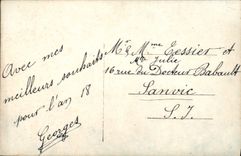 Avec mes
meilleurs souhaits
pour l'an 18
Georges
Mr & Mme Tessier et
Mlle Julie
16 rue du Docteur Babault
Sanvic
S. I.